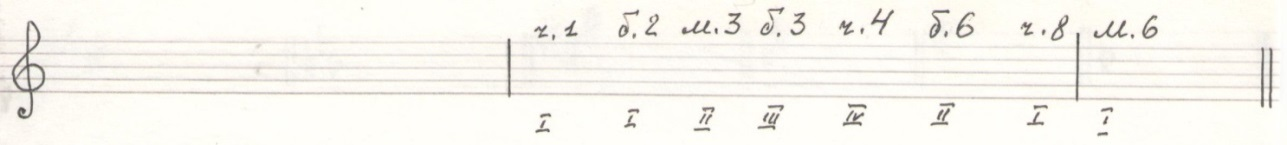 ч.1 б.2 м.3 б.3 ч.4 б.6 ч.8 м.6
I I II III IV II I I